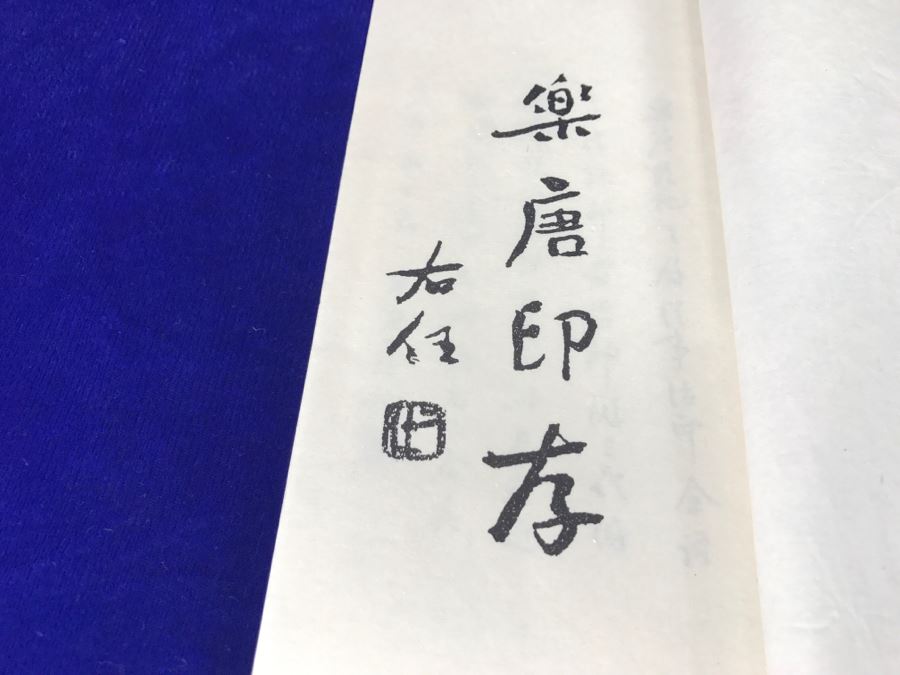 樂唐印存
右任